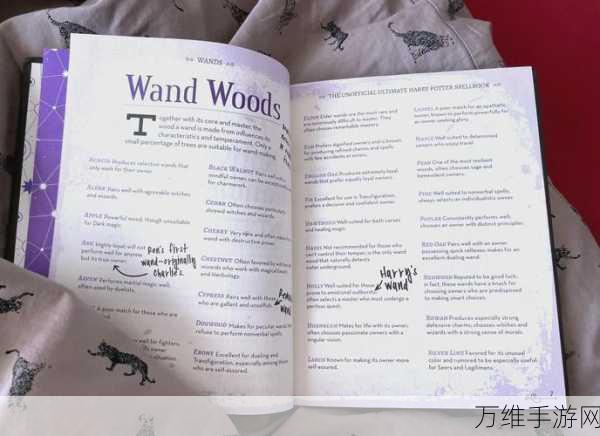 WANDS
Wand Woods
Together with its core and master, the
wood a wand is made from influences its
characteristics and temperament. Only a
small percentage of trees are suitable for wand-making.
ACACIA Produces selective wands that
only work for their owner.
ALDER Pairs well with agreeable witches
and wizards.
APPLE Powerful wood, though unsuitable
for Dark magic.
ASH Highly loyal will not
perform well for anyone
but its true owner.
Ron's first
wand-originally
Charlie's
ASPEN Performs martial magic well,
often used by duelists.
A poor match for those who are
well for fighters.
its owner
situation.
BLACK WALNUT Pairs well with
mindful owners can be exceptional
for charmwork.
CEDAR Often chooses particularly
shrewd witches and wizards.
CHERRY Very rare and often makes
wand with destructive power.
CHESTNUT Often favored by
wizards who work with magical beasts
and Herbology.
CYPRESS Pairs well with those
who are gallant and unselfish.
DOGWOOD Makes for peculiar wands
refuse to perform nonverbal spells.
EBONY Excellent for dueling and
Transfiguration, especially among those
who are self-assured.
THE UNOFFICIAL ULTIMATE HARRY POTTER SPELLBOOK
ELDER Elder wands are the most rare and
are notoriously difficult to master. They
often choose remarkable masters.
ELM Prefers dignified owners and is known
for producing refined charms and spells
with few accidents or errors.
ENGLISH OAK Produces extremely loyal
wands that prefer equally loyal owners.
FIR Excellent for use in Transfiguration,
prefers a decisive and confident owner.
HAWTHORN Well suited for both curses
and healing magic.
HAZEL Not recommended for those who
can't control their temper; is the only wand
wood that naturally detects
water underground.
HOLLY Well suited for those
prone to emotional outbursts,
often selects a master who must undergo a
perilous quest.
Harry's
wand
HORNBEAM Makes for life with its owner,
often chooses passionate owners with a
singular vision.
LARCH Known for making its owner more
self-assured.
LAUREL A poor match for an apathetic
owner, known to perform powerfully for
an owner seeking glory.
MAPLE Well suited to determined
owners who enjoy travel.
PEAR One of the most resilient
woods, often chooses sage and
benevolent owners.
PINE Well suited to nonverbal spells,
always selects an individualistic owner.
POPLAR Consistently performs well,
chooses an owner with distinct
RED OAK Pairs well with an owner
possessing quick reflexes, makes for an
excellent dueling wand.
REDWOOD Reputed to be good luck;
in fact, these wands have a knack for
choosing owners who are predisposed
to making smart choices.
ROWAN Produces especially strong
defensive charms, chooses witches and
wizards with a strong sense of morals.
SILVER LIME Favored for its unusual
color and rumored to be especially useful
for Seers and Legilimens.
7
万维手游网